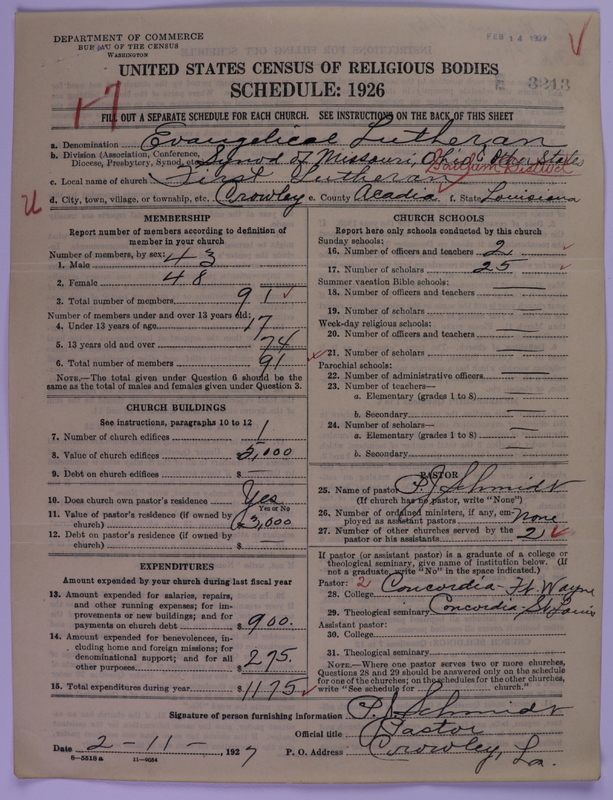 DEPARTMENT OF COMMERCE
BUREAU OF THE CENSUS
WASHINGTON
FEB 14 1927
UNITED STATES CENSUS OF RELIGIOUS BODIES
SCHEDULE: 1926
3213
17
FILL OUT A SEPARATE SCHEDULE FOR EACH CHURCH. SEE INSTRUCTIONS ON THE BACK OF THIS SHEET
a. Denomination Evangelical Lutheran
b. Division (Association, Conference, Diocese, Presbytery, Synod, etc.) Synod of Missouri, Ohio & Other States
c. Local name of church First Lutheran
d. City, town, village, or township, etc. Crowley e. County Acadia f. State Louisiana
MEMBERSHIP
Report number of members according to definition of
member in your church
Number of members, by sex:
1. Male 43
2. Female 48
3. Total number of members 91
Number of members under and over 13 years old:
4. Under 13 years of age 17
5. 13 years old and over 74
6. Total number of members 91
NOTE.—The total given under Question 6 should be the
same as the total of males and females given under Question 3.
CHURCH BUILDINGS
See instructions, paragraphs 10 to 12
7. Number of church edifices 1
8. Value of church edifices $5,000
9. Debt on church edifices $ —
10. Does church own pastor's residence Yes
Yes or No
11. Value of pastor's residence (if owned by
church) $3,000
12. Debt on pastor's residence (if owned by
church) $ —
EXPENDITURES
Amount expended by your church during last fiscal year
13. Amount expended for salaries, repairs,
and other running expenses; for im-
provements or new buildings; and for
payments on church debt $900.
14. Amount expended for benevolences, in-
cluding home and foreign missions; for
denominational support; and for all
other purposes $275.
15. Total expenditures during year $1175
CHURCH SCHOOLS
Report here only schools conducted by this church
Sunday schools:
16. Number of officers and teachers 2
17. Number of scholars 25
Summer vacation Bible schools:
18. Number of officers and teachers —
19. Number of scholars —
Week-day religious schools:
20. Number of officers and teachers —
21. Number of scholars —
Parochial schools:
22. Number of administrative officers —
23. Number of teachers—
a. Elementary (grades 1 to 8) —
b. Secondary —
24. Number of scholars—
a. Elementary (grades 1 to 8) —
b. Secondary —
PASTOR
25. Name of pastor P. J. Schmidt
(If church has no pastor, write "None")
26. Number of ordained ministers, if any, em-
ployed as assistant pastors None
27. Number of other churches served by the
pastor or his assistants 2
If pastor (or assistant pastor) is a graduate of a college or
theological seminary, give name of institution below. (If
not a graduate, write "No" in the space indicated.)
Pastor: 2
28. College Concordia - Ft. Wayne
29. Theological seminary Concordia St. Louis
Assistant pastor:
30. College
31. Theological seminary
NOTE.—Where one pastor serves two or more churches,
Questions 28 and 29 should be answered only on the schedule
for one of the churches; on the schedules for the other churches,
write "See schedule for church."
Signature of person furnishing information P. J. Schmidt
Official title Pastor
Date 2-11-, 1927
P. O. Address Crowley, La.
8-5518a 11-9054